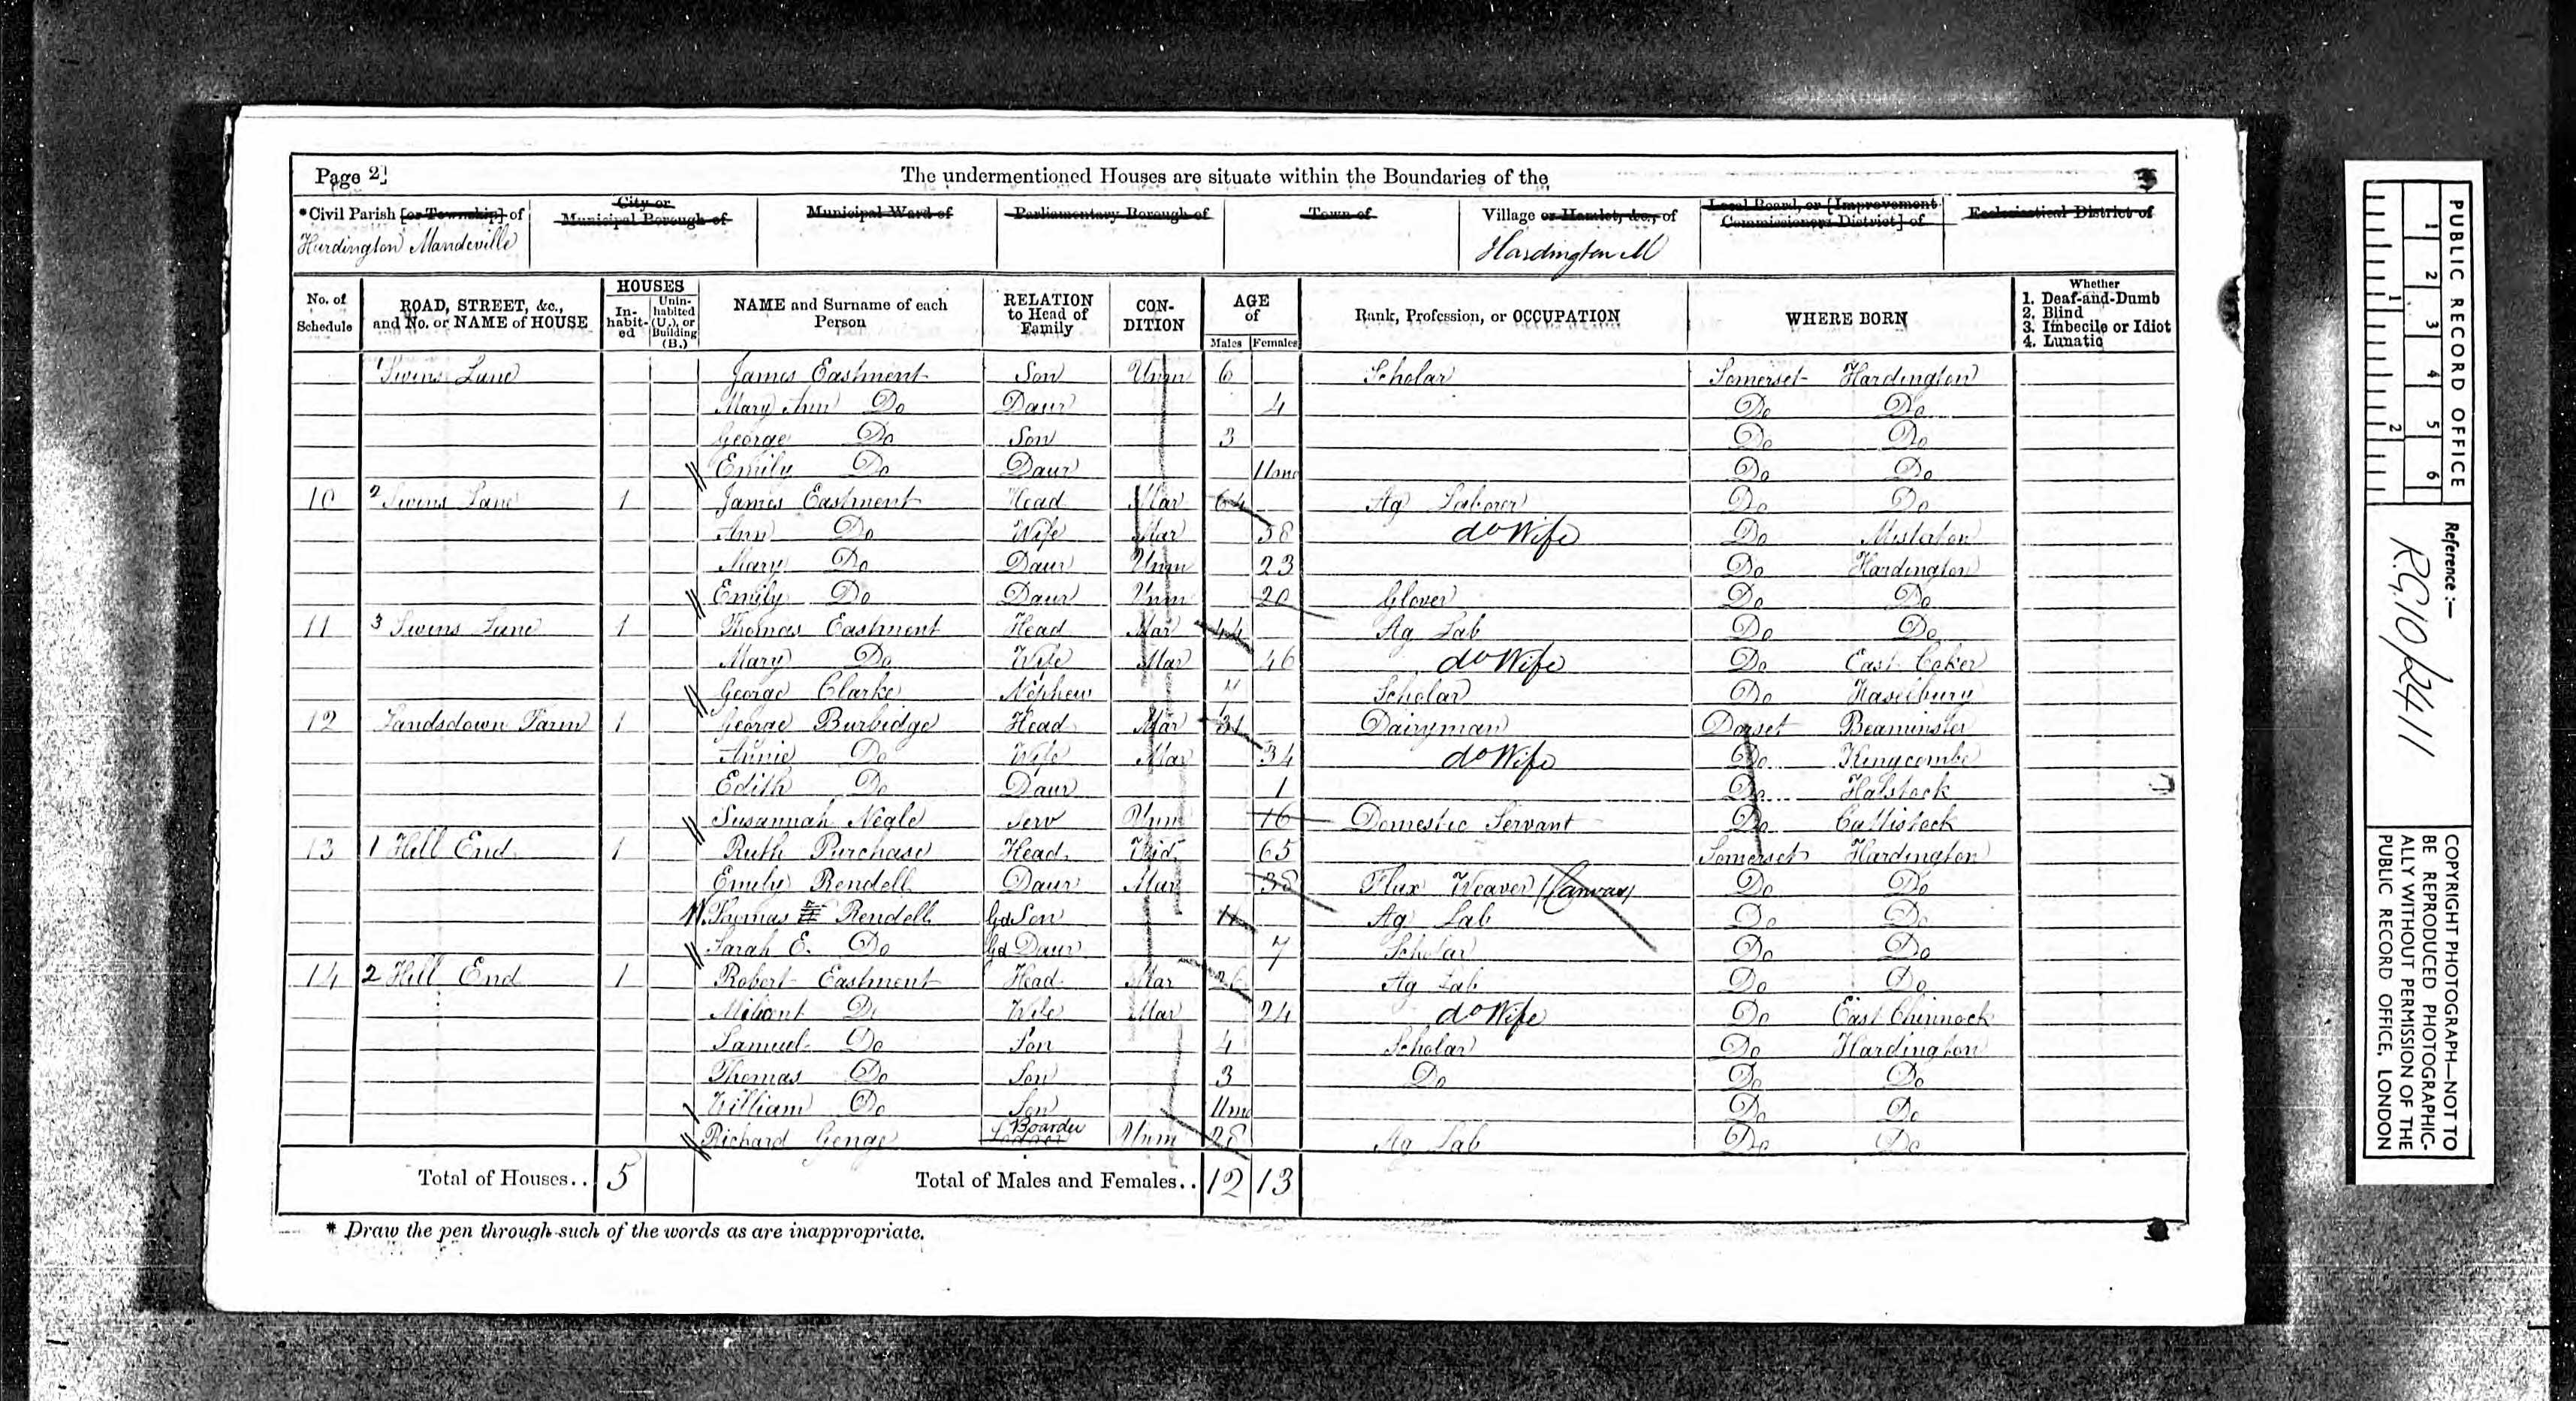 Page 2]
The undermentioned Houses are situate within the Boundaries of the
*Civil Parish [or Township] of
Hardington Mandeville
City or
Municipal Borough of
Municipal Ward of
Parliamentary Borough of
Town of
Village or Hamlet, &c., of
Hardington M
Local Board, or [Improvement
Commissioners District] of
Ecclesiastical District of
No. of
Schedule
ROAD, STREET, &c.,
and No. or NAME of HOUSE
HOUSES
In-
habit-
ed
Unin-
habited
(U.), or
Building
(B.)
NAME and Surname of each
Person
RELATION
to Head of
Family
CON-
DITION
AGE
of
Males Females
Rank, Profession, or OCCUPATION
WHERE BORN
Whether
1. Deaf-and-Dumb
2. Blind
3. Imbecile or Idiot
4. Lunatic
1 Swins Lane James Eastment Son Unm 6 Scholar Somerset Hardington
Mary Ann Do Daur 4 Do Do
George Do Son 3 Do Do
Emily Do Daur 11mo Do Do
10 2 Swins Lane 1 James Eastment Head Mar 64 Ag Laborer Do Do
Ann Do Wife Mar 58 do Wife Do Misterton
Mary Do Daur Unm 23 Do Hardington
Emily Do Daur Unm 20 Glover Do Do
11 3 Swins Lane 1 Thomas Eastment Head Mar 44 Ag Lab Do Do
Mary Do Wife Mar 46 do Wife Do East Coker
George Clarke Nephew 11 Scholar Do Haselbury
12 Landsdown Farm 1 George Burbidge Head Mar 31 Dairyman Dorset Beaminster
Annie Do Wife Mar 34 do Wife Do Kingcombe
Edith Do Daur 1 Do Halstock
Susannah Neale Serv Unm 16 Domestic Servant Do Cattistock
13 1 Hill End 1 Ruth Purchase Head Wid 65 Somerset Hardington
Emily Rendell Daur Mar 38 Flax Weaver (Canvas) Do Do
Thomas Rendell Gd Son 11 Ag Lab Do Do
Sarah E. Do Gd Daur 7 Scholar Do Do
14 2 Hill End 1 Robert Eastment Head Mar 26 Ag Lab Do Do
Do Wife Mar 24 do Wife Do East Chinnock
Samuel Do Son 4 Scholar Do Hardington
Thomas Do Son 3 Do Do Do
William Do Son 11mo Do Do
Richard Genge Lodger Boarder Unm 28 Ag Lab Do Do
Total of Houses.. 5 Total of Males and Females.. 12 13
* Draw the pen through such of the words as are inappropriate.
PUBLIC RECORD OFFICE
1 2 3 4 5 6
1 2
Reference :—
R.G.10/2411
COPYRIGHT PHOTOGRAPH—NOT TO
BE REPRODUCED PHOTOGRAPHIC-
ALLY WITHOUT PERMISSION OF THE
PUBLIC RECORD OFFICE, LONDON